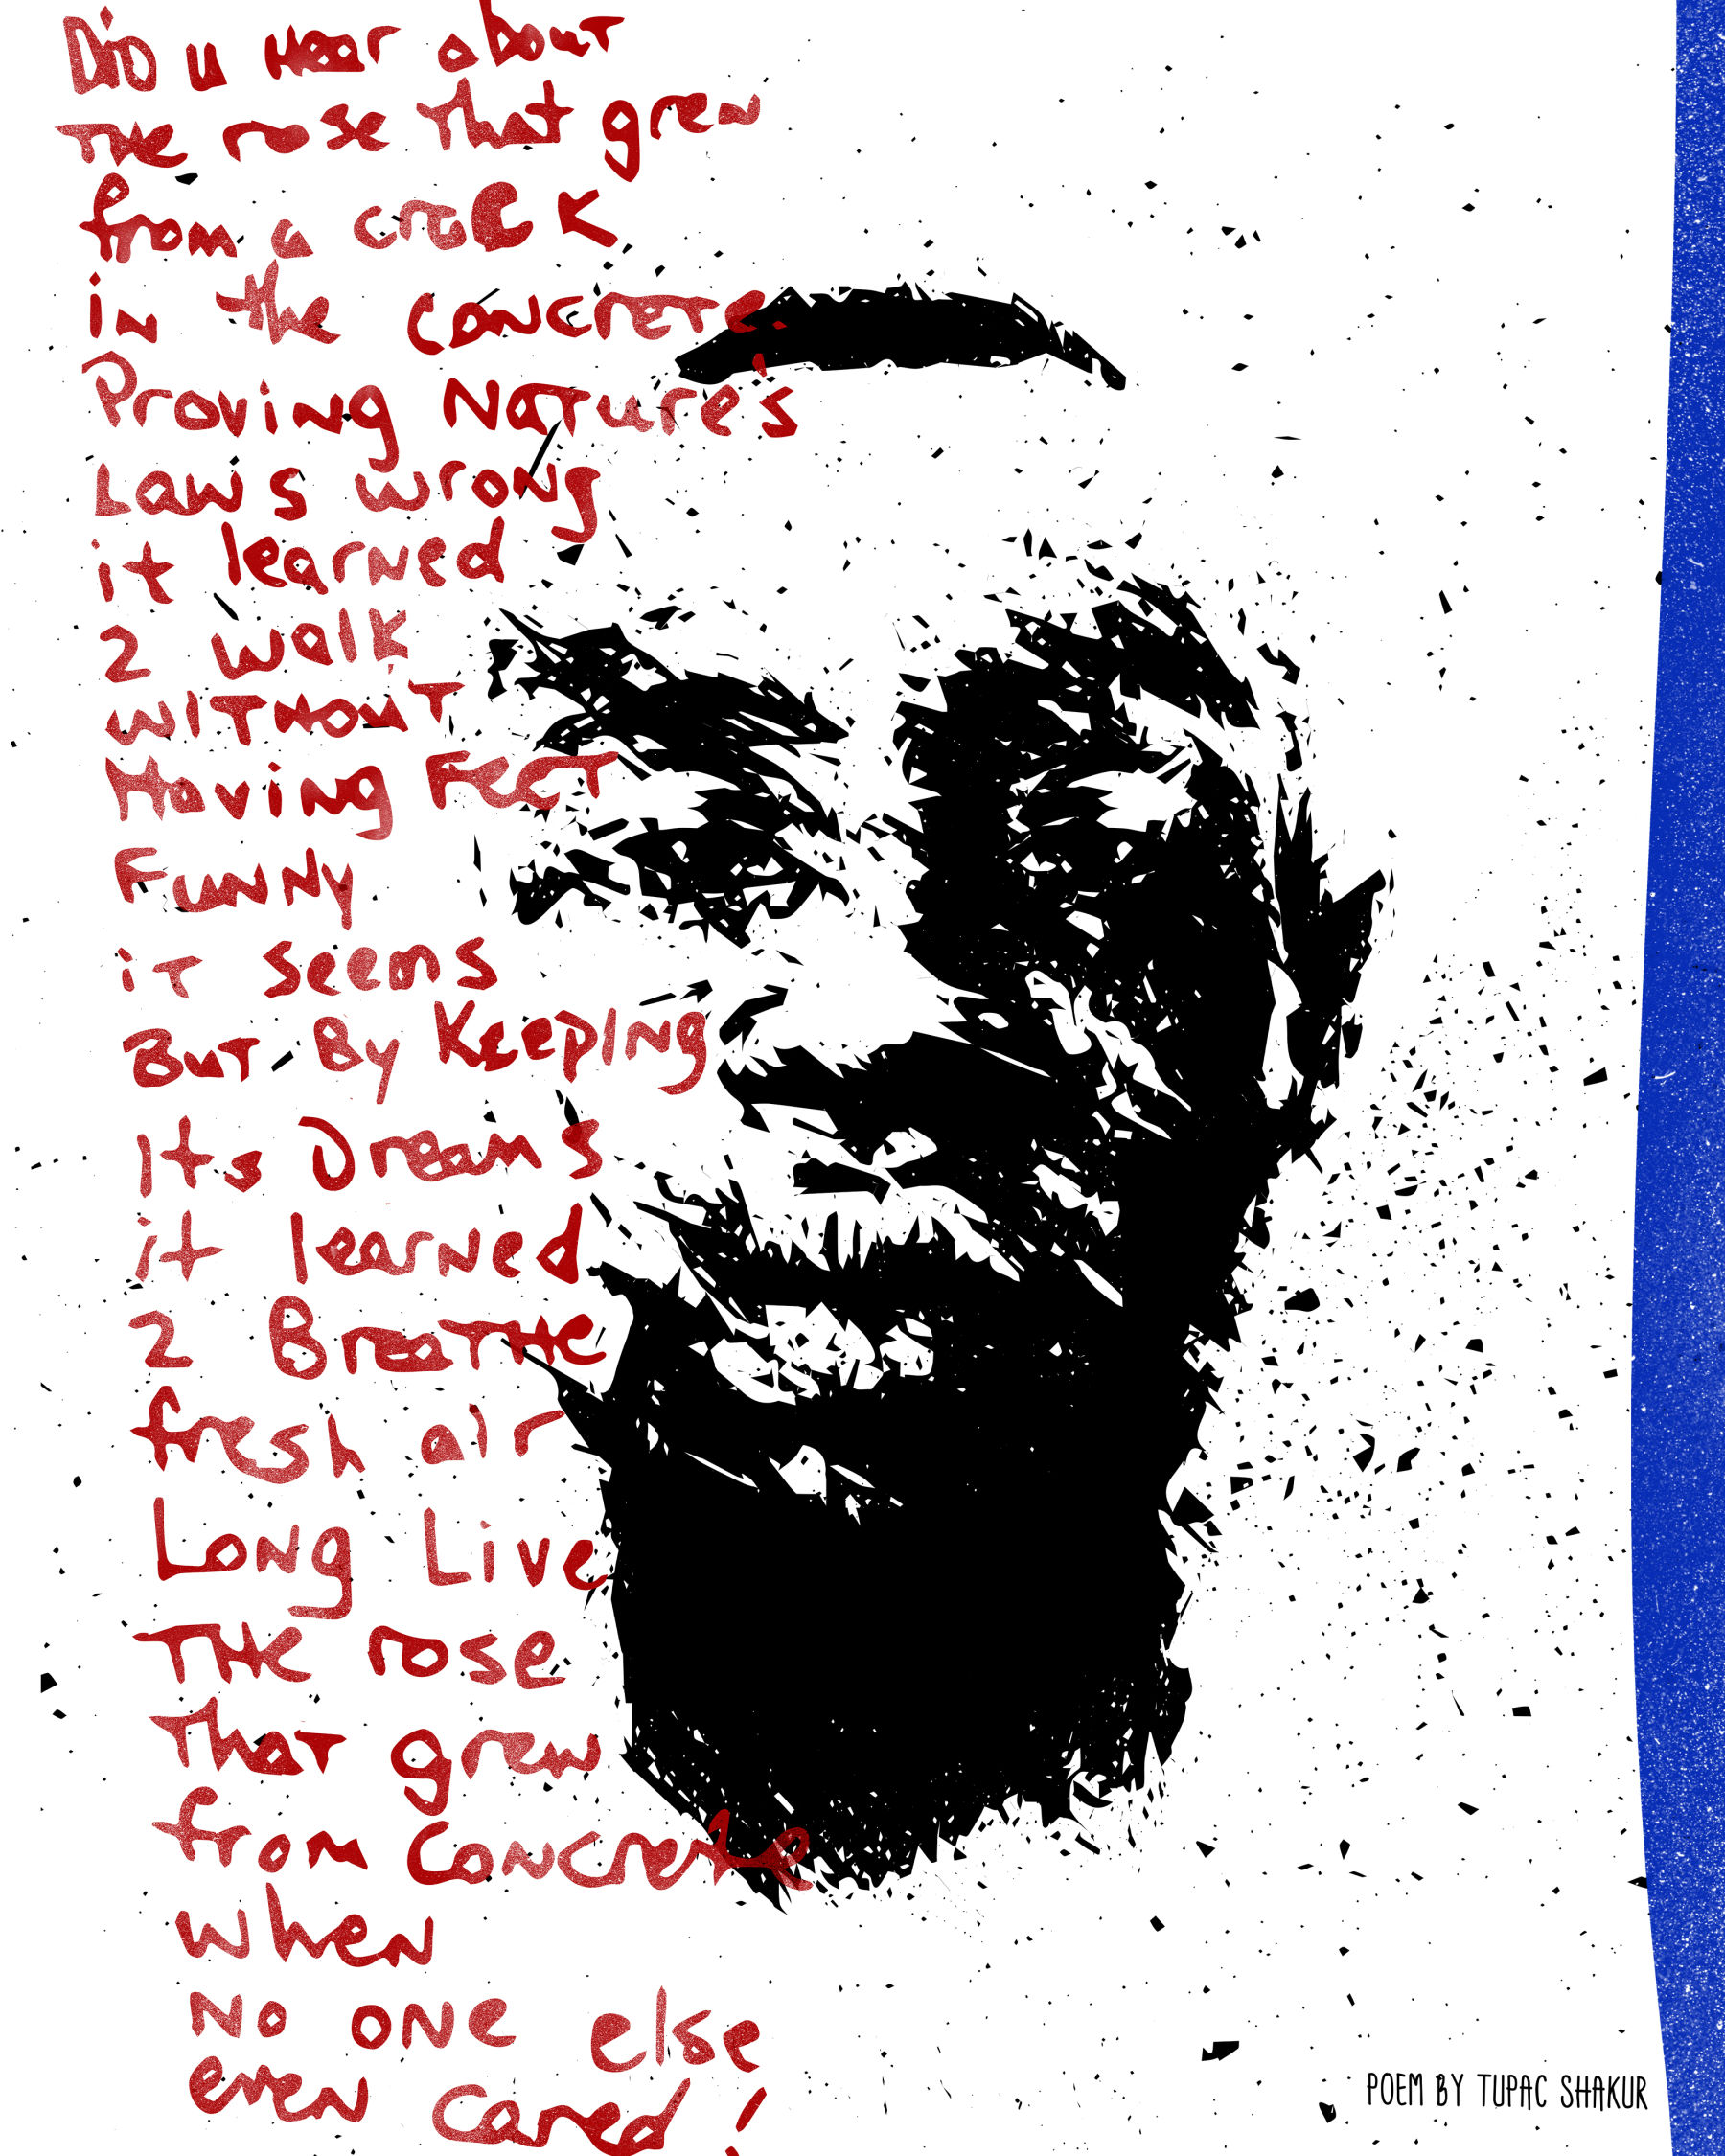 Did u hear about
The rose that grew
from a crack
in the concrete.
Proving Nature's
Laws wrong
it learned
2 walk
WITHOUT
Having Feet
Funny
iT seems
But By Keeping
Its Dreams
it learned
2 BreaTHe
fresh air
Long Live
THe rose
That grew
from Concrete
when
No one else
even cared!
POEM BY TUPAC SHAKUR